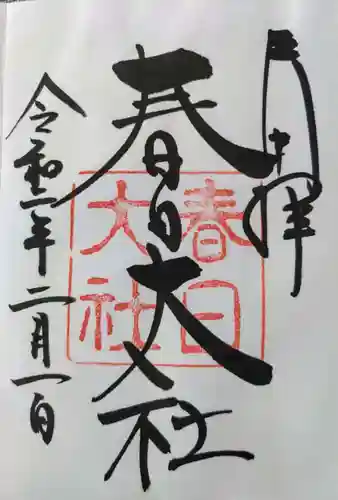 奉拝
春日大社
春日
大社
令和二年二月一日